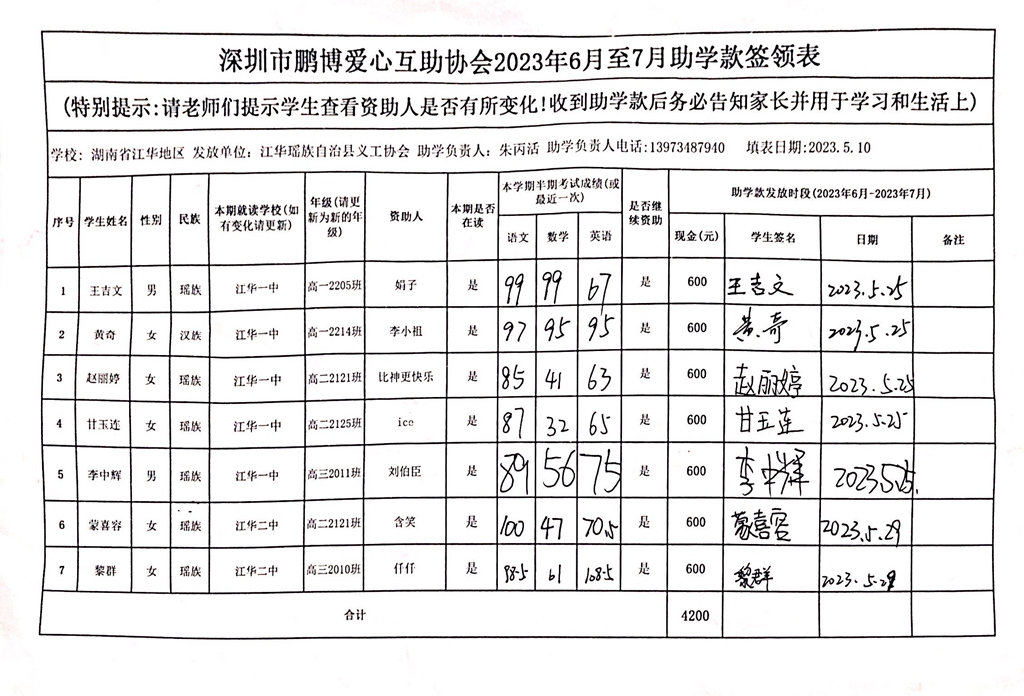 深圳市鹏博爱心互助协会2023年6月至7月助学款签领表
(特别提示:请老师们提示学生查看资助人是否有所变化!收到助学款后务必告知家长并用于学习和生活上)
学校: 湖南省江华地区 发放单位: 江华瑶族自治县义工协会 助学负责人: 朱丙活 助学负责人电话:13973487940 填表日期:2023.5.10
序号 学生姓名 性别 民族 本期就读学校(如有变化请更新) 年级(请更新为新的年级) 资助人 本期是否在读 本学期半期考试成绩(或最近一次) 是否继续资助 助学款发放时段(2023年6月-2023年7月)
语文 数学 英语 现金(元) 学生签名 日期 备注
1 王吉文 男 瑶族 江华一中 高一2205班 娟子 是 99 99 67 是 600 王吉文 2023.5.25
2 黄奇 女 汉族 江华一中 高一2214班 李小祖 是 97 95 95 是 600 黄奇 2023.5.25
3 赵丽婷 女 瑶族 江华一中 高二2121班 比神更快乐 是 85 41 63 是 600 赵丽婷 2023.5.25
4 甘玉连 女 瑶族 江华一中 高二2125班 ice 是 87 32 65 是 600 甘玉连 2023.5.25
5 李中辉 男 瑶族 江华一中 高三2011班 刘伯臣 是 89 56 75 是 600 李中辉 2023.5.25.
6 蒙喜容 女 瑶族 江华二中 高二2121班 含笑 是 100 47 70.5 是 600 蒙喜容 2023.5.29
7 黎群 女 瑶族 江华二中 高三2010班 仟仟 是 98.5 61 108.5 是 600 黎群 2023.5.29
合计 4200